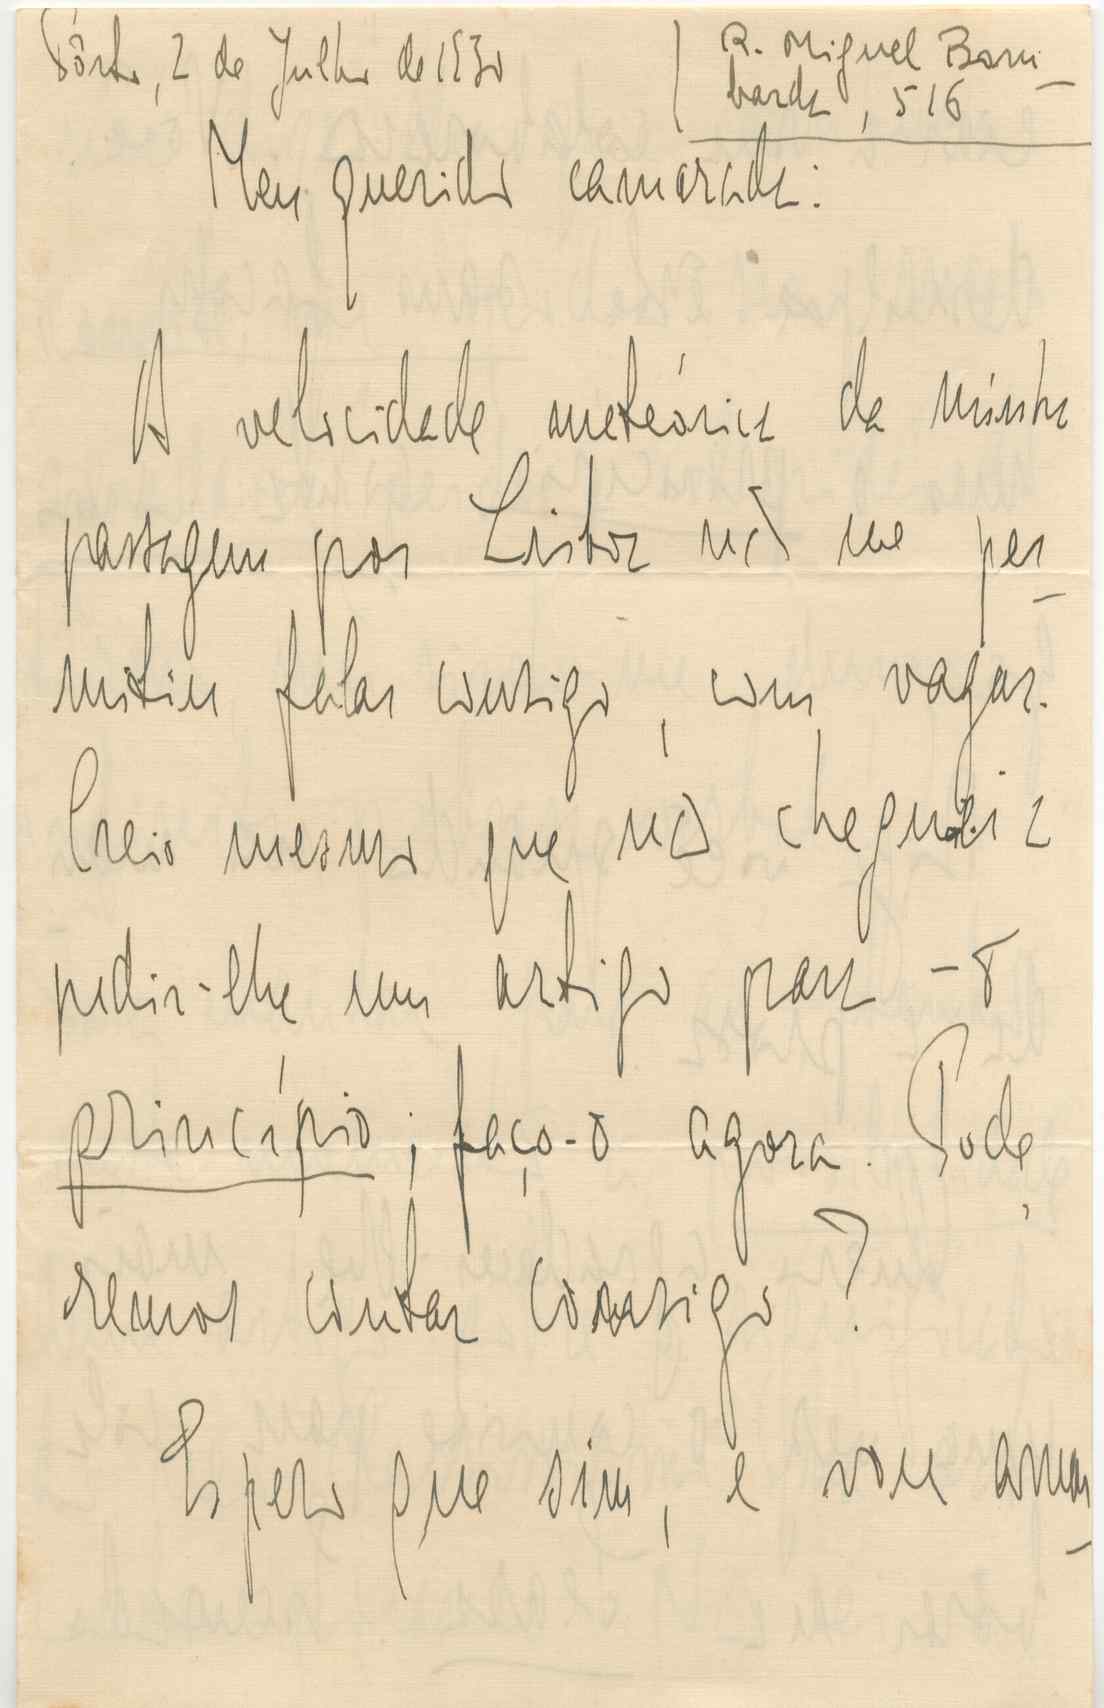 Pôrto, 2 de Julho de 1930
R. Miguel Bom-
barda, 516
Meu querido camarada:
A velocidade meteórica da minha
passagem por Lisboa não me per-
mitiu falar contigo, com vagar.
Creio mesmo que não cheguei a
pedir-lhe um artigo para -o
princípio; faço-o agora. Pode-
remos contar contigo?
Espero que sim, e vou aman-